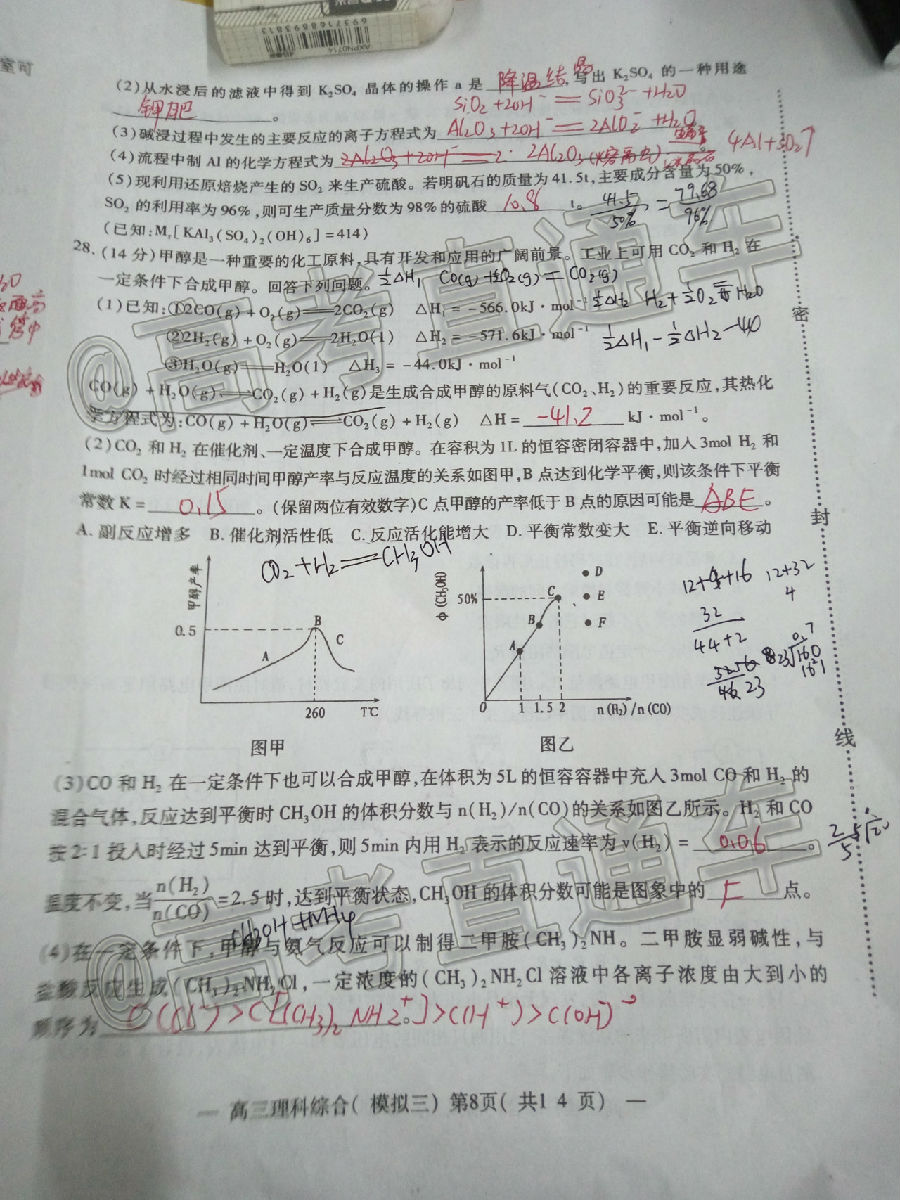 6937168593813
AXPN0714
室可
(2)从水浸后的滤液中得到 K₂SO₄ 晶体的操作 a 是 降温结晶 写出 K₂SO₄ 的一种用途
钾肥 。 SiO₂+2OH⁻ = SiO₃²⁻+H₂O
(3)碱浸过程中发生的主要反应的离子方程式为 Al₂O₃+2OH⁻ = 2AlO₂⁻+H₂O
(4)流程中制 Al 的化学方程式为 2Al₂O₃ 4Al+3O₂↑
(5)现利用还原焙烧产生的 SO₂ 来生产硫酸。若明矾石的质量为 41.5t,主要成分含量为 50%,
SO₂ 的利用率为 96%,则可生产质量分数为 98%的硫酸 t。 41.5/50% = 79.68/96%
(已知:Mᵣ[KAl₃(SO₄)₂(OH)₆]=414)
28. (14 分)甲醇是一种重要的化工原料,具有开发和应用的广阔前景。工业上可用 CO₂ 和 H₂ 在
一定条件下合成甲醇。回答下列问题。 ½ΔH₁ CO(g)+½O₂(g)=CO₂(g)
(1)已知:①2CO(g)+O₂(g)══2CO₂(g) △H₁=-566.0kJ·mol⁻¹ ½ΔH₂ H₂+½O₂ H₂O
②2H₂(g)+O₂(g)══2H₂O(l) △H₂=-571.6kJ·mol⁻¹ ½ΔH₁-½ΔH₂-
③H₂O(g)══H₂O(l) △H₃=-44.0kJ·mol⁻¹
CO(g)+H₂O(g)⇌CO₂(g)+H₂(g)是生成合成甲醇的原料气(CO₂、H₂)的重要反应,其热化
学方程式为:CO(g)+H₂O(g)⇌CO₂(g)+H₂(g) △H= -41.2 kJ·mol⁻¹。
(2)CO₂ 和 H₂ 在催化剂、一定温度下合成甲醇。在容积为 1L 的恒容密闭容器中,加入 3mol H₂ 和
1mol CO₂ 时经过相同时间甲醇产率与反应温度的关系如图甲,B 点达到化学平衡,则该条件下平衡
常数 K= 0.15 。(保留两位有效数字)C 点甲醇的产率低于 B 点的原因可能是 ABE 。
A. 副反应增多 B. 催化剂活性低 C. 反应活化能增大 D. 平衡常数变大 E. 平衡逆向移动
CO₂+H₂⇌CH₃OH
甲醇产率
0.5
A
B
C
260
T℃
图甲
φ(CH₃OH)
50%
A
B
C
D
E
F
0 1 1.5 2 n(H₂)/n(CO)
图乙
12+4+16 12+32
32 4
44+2
46
(3)CO 和 H₂ 在一定条件下也可以合成甲醇,在体积为 5L 的恒容容器中充入 3mol CO 和 H₂ 的
混合气体,反应达到平衡时 CH₃OH 的体积分数与 n(H₂)/n(CO)的关系如图乙所示。H₂ 和 CO
按 2:1 投入时经过 5min 达到平衡,则 5min 内用 H₂ 表示的反应速率为 v(H₂)= 0.06 。
温度不变,当n(H₂)/n(CO)=2.5 时,达到平衡状态,CH₃OH 的体积分数可能是图象中的 F 点。
(4)在一定条件下,甲醇与氨气反应可以制得二甲胺(CH₃)₂NH。二甲胺显弱碱性,与
盐酸反应生成(CH₃)₂NH₂Cl,一定浓度的(CH₃)₂NH₂Cl 溶液中各离子浓度由大到小的
顺序为 C(Cl⁻)>C[(CH₃)₂NH₂⁺]>C(H⁺)>C(OH)⁻ 。
密
封
线
@高考直通车
@高考直通车
— 高三理科综合( 模拟三) 第8页( 共1 4 页) —